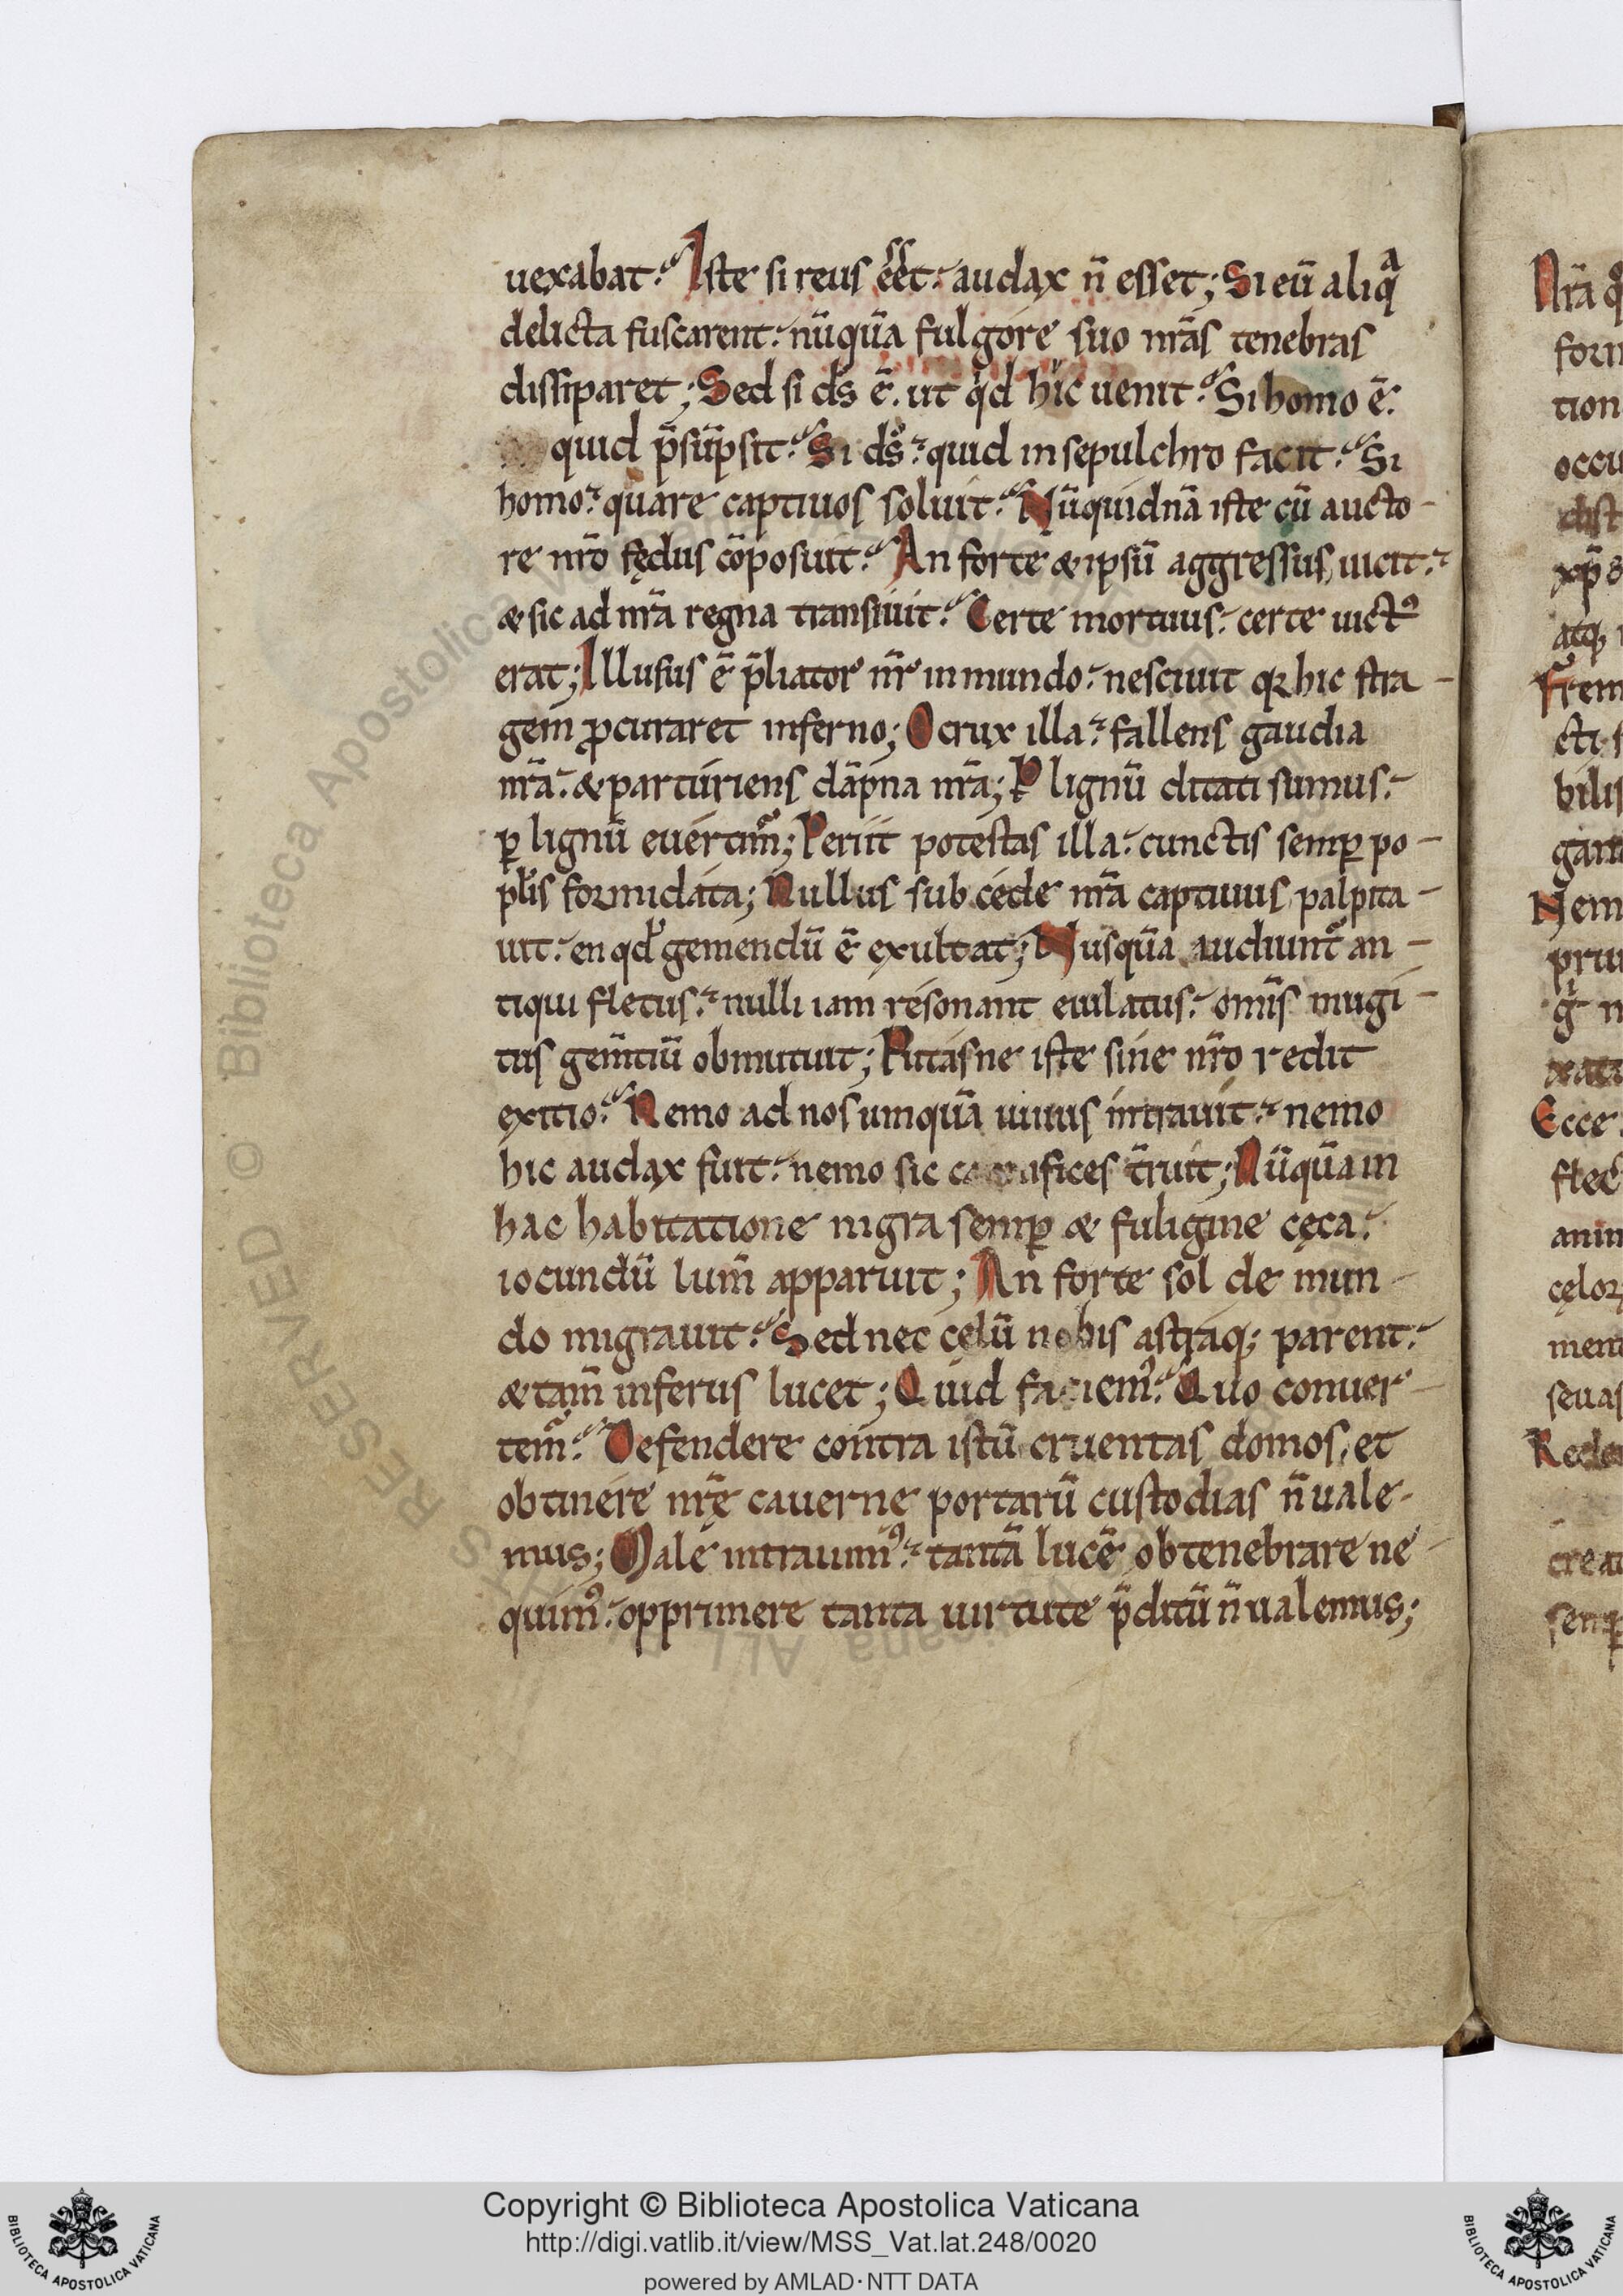 uexabat. Iste si reus eēt. audax n̄ esset; Si eū aliqͣ
delicta fuscarent. nūquā fulgore suo nr̄as tenebras
dissiparet; Sed si ds̄ ē. ut qͥd hic uenit. Si homo ē.
quid p̄sūpsit. Si ds̄. quid in sepulchro facit. Si
homo. quare captiuos soluit. Nūquidnā iste cū aucto-
re nr̄o fędus cōposuit. An forte & ipsū aggressus uicit.
& sic ad nr̄a regna transiuit. Certe mortuus. certe uictꝰ
erat; Illusus ē p̄liator nr̄ in mundo. nesciuit qꝛ hic stra-
gem ꝓcuraret inferno; O crux illa. fallens gaudia
nr̄a. & parturiens dāpna nr̄a; P lignū ditati sumus.
ꝑ lignū euertimᷣ; Periit potestas illa. cunctis semꝑ po-
pl̄is formidata; Nullus sub cede nr̄a captiuus palpita-
uit. en qđ gemendū ē exultat; Nusquā audiuntᷣ an-
tiqui fletus. nulli iam resonant eiulatus. om̄is mugi-
tus gem̄tiū obmutuit; Putasne iste sine nr̄o redit
exitio. Nemo ad nos umquā uiuus intrauit. nemo
hic audax fuit. nemo sic carnifices t̄ruit; Nūquā in
hac habitatione nigra semꝑ & fuligine cęca.
iocundū lum̄ apparuit; An forte sol de mun-
do migrauit. Sed nec cęlū nobis astraqꝫ parent.
& tam̄ inferus lucet; Quid faciemꝰ. Quo conuer-
temᷣ. Defendere contra istū cruentas domos, et
obtinere nr̄ę cauerne portarū custodias n̄ uale-
mus; Male intrauimꝰ. tantā lucē obtenebrare ne-
quimꝰ. opprimere tanta uirtute p̄ditū n̄ ualemus;
Nr̄a
form
tion
occu
dist
xp̄s
atqꝫ
Frem
cti
bilis
gant
Nem
priu
Ecce
flect
anim
cęloꝝ
ment
seuas
Rede
creat
semꝑ
© Biblioteca Apostolica Vaticana ALL RIGHTS RESERVED
Copyright © Biblioteca Apostolica Vaticana
http://digi.vatlib.it/view/MSS_Vat.lat.248/0020
powered by AMLAD·NTT DATA
BIBLIOTECA APOSTOLICA VATICANA
BIBLIOTECA APOSTOLICA VATICANA